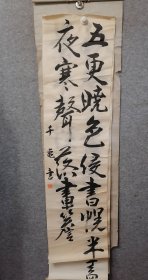 五更曉色侵書幌半夜
寒聲落畫簷